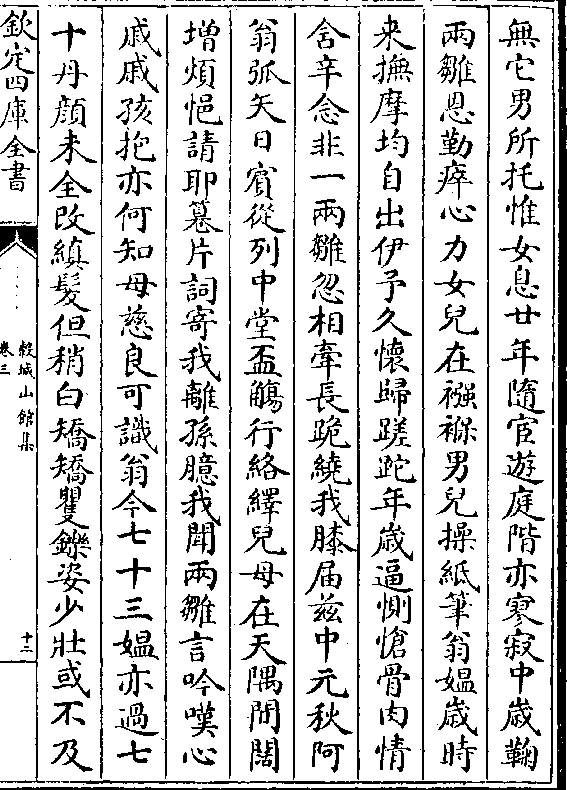 無它男所托惟女息廿年隨宦遊庭階亦寥寂中歲鞠
兩雛恩勤瘁心力女兒在襁褓男兒操紙筆翁媼歲時
来撫摩均自出伊予久懷歸蹉跎年歲逼惻愴骨肉情
含辛念非一兩雛忽相牽長跪繞我膝届兹中元秋阿
翁弧矢日賓從列中堂盃觴行絡繹兒母在天隅間闊
增煩悒請耶篡片詞寄我離孫臆我聞兩雛言吟嘆心
戚戚孩抱亦何知母慈良可識翁今七十三媼亦過七
十丹顔未全改縝髪但稍白矯矯矍鑠姿少壯或不及
欽定四庫全書
榖城山館集
卷三
十二